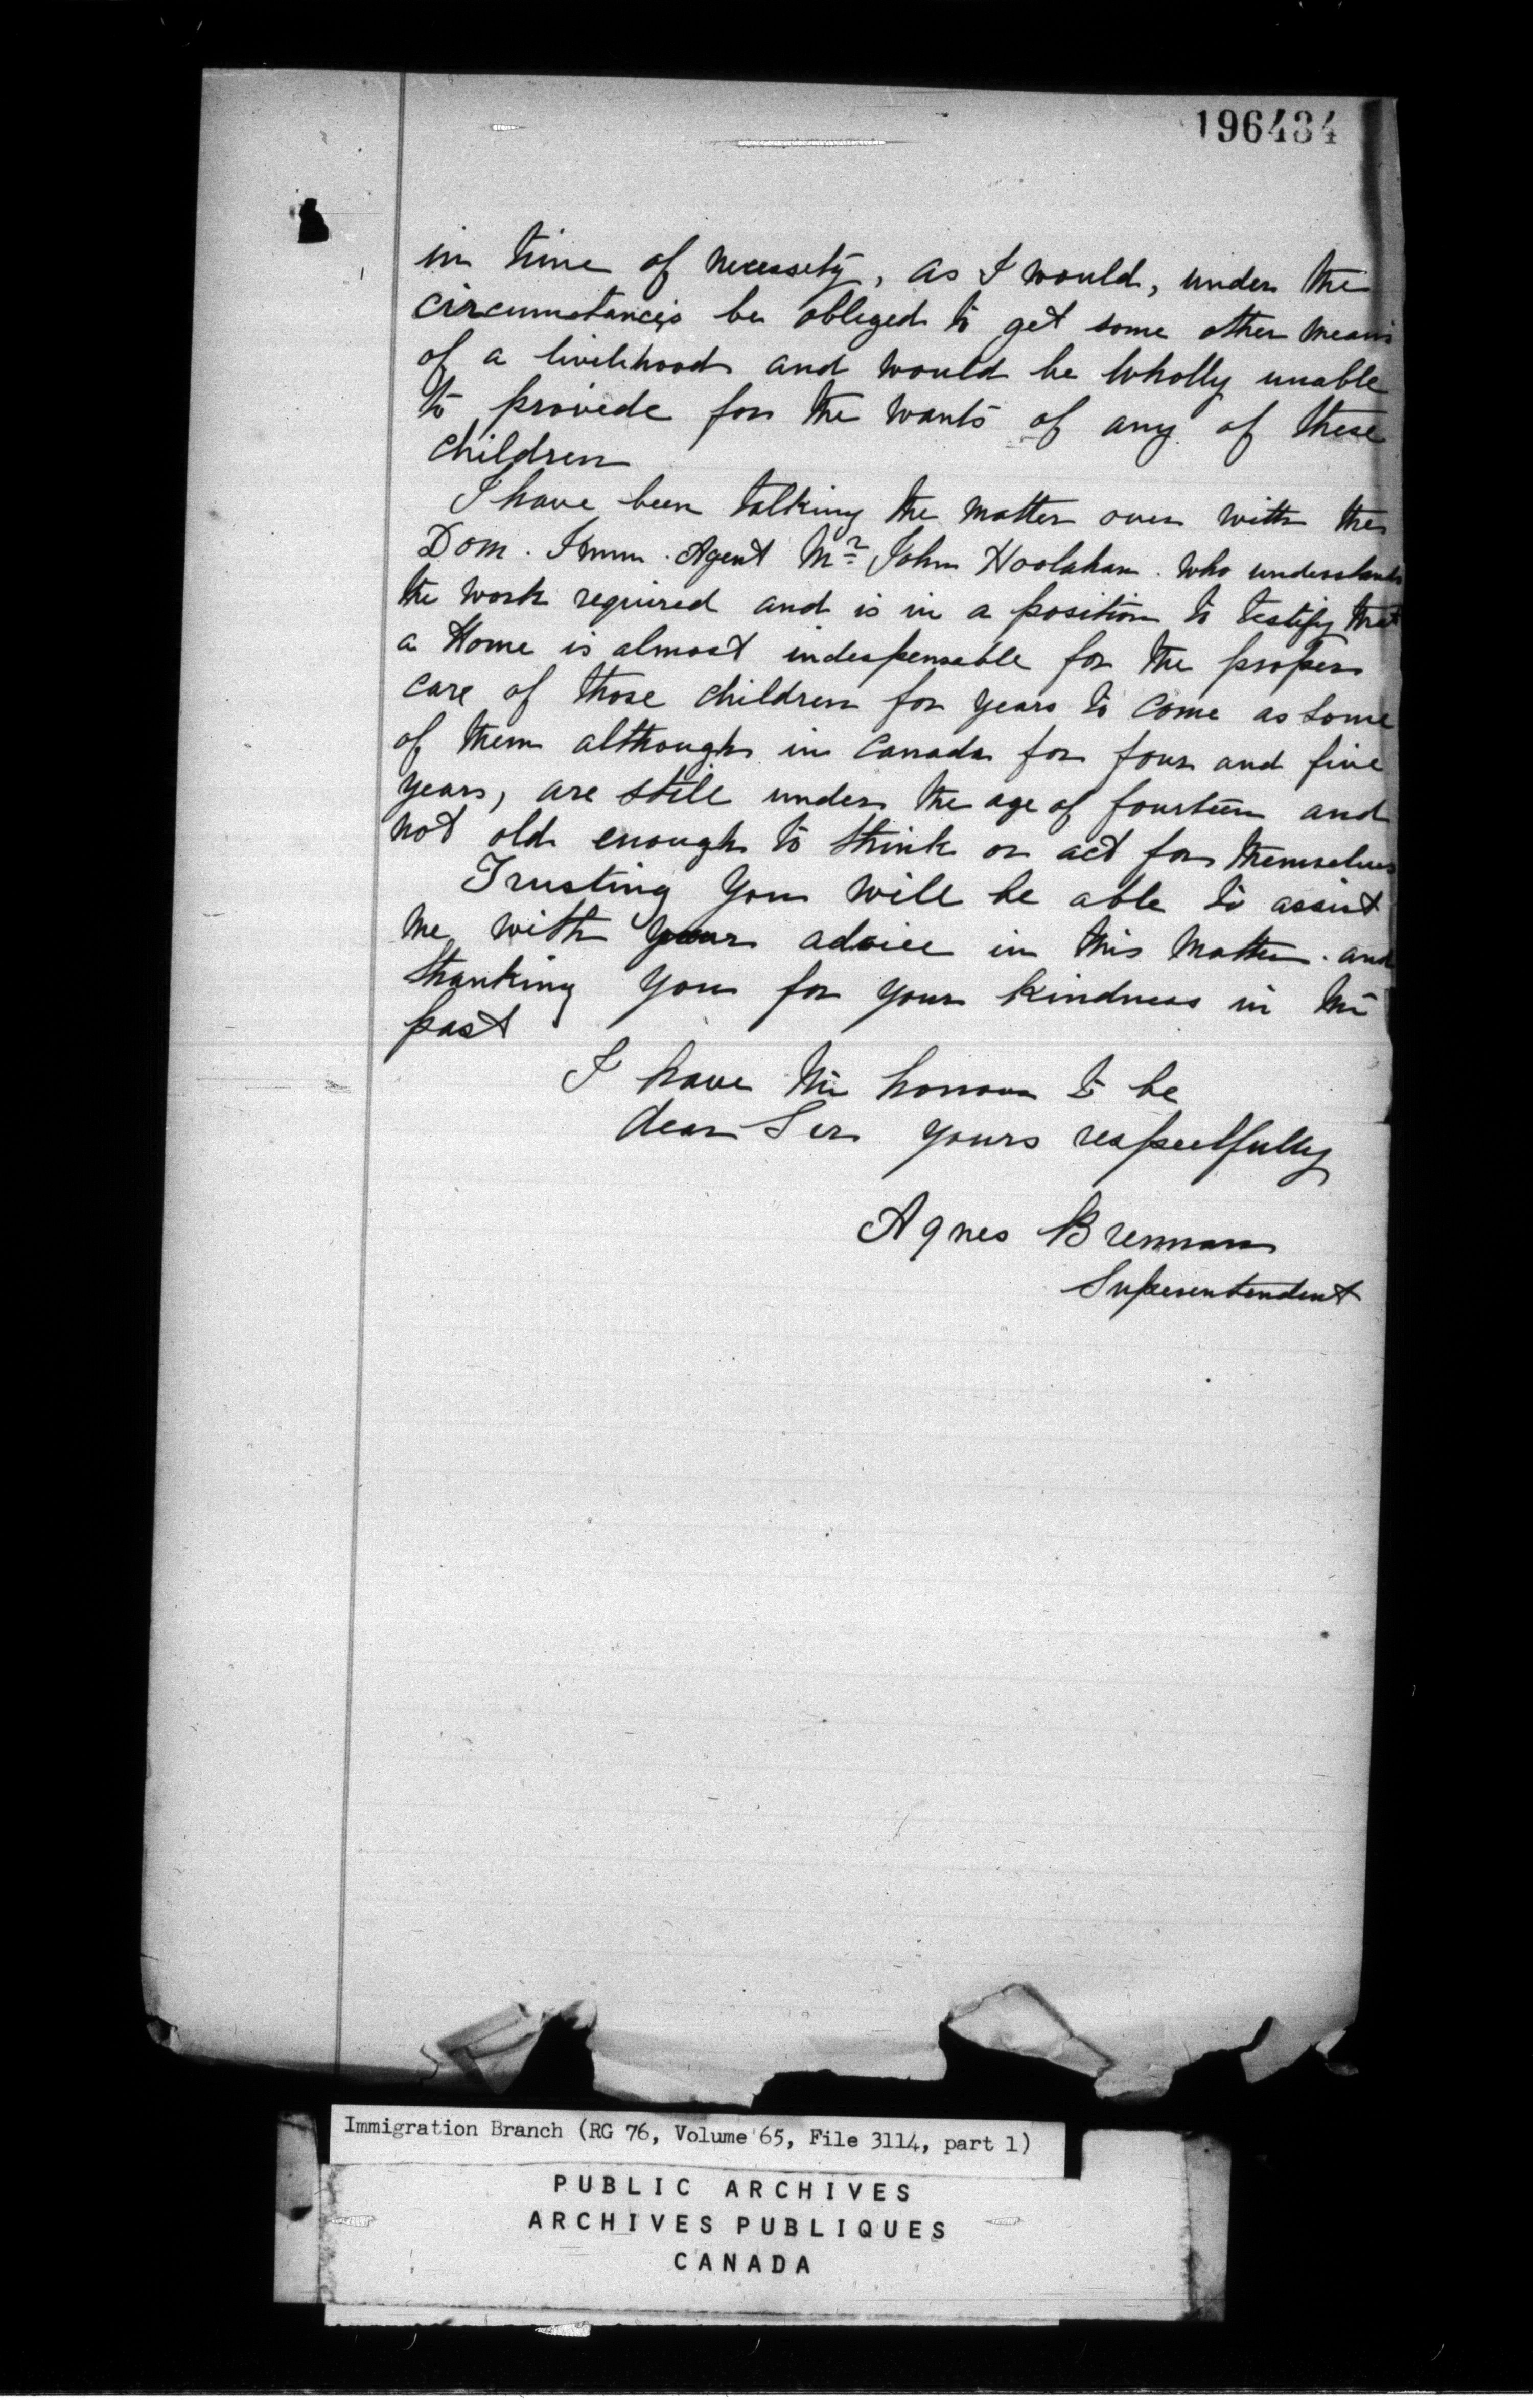 196434
in time of necessety, as I would, under the
circumstances be obleged to get some other means
of a livelihood and would be wholly unable
to provide for the wants of any of these
children
I have been talking the matter over with the
Dom. Imm. Agent Mr John Hoolahan. who understands
the work required and is in a position to testify that
a Home is almost indespensable for the proper
care of those children for years to come as some
of them although in Canada for four and five
years, are still under the age of fourteen and
not old enough to think or act for themselves
Trusting you will be able to assist
me with your advice in this matter. and
thanking you for your kindness in the
past
I have the honour to be
dear Sir yours respectfully
Agnes Brennan
Superentendent
Immigration Branch (RG 76, Volume 65, File 3114, part 1)
PUBLIC ARCHIVES
ARCHIVES PUBLIQUES
CANADA